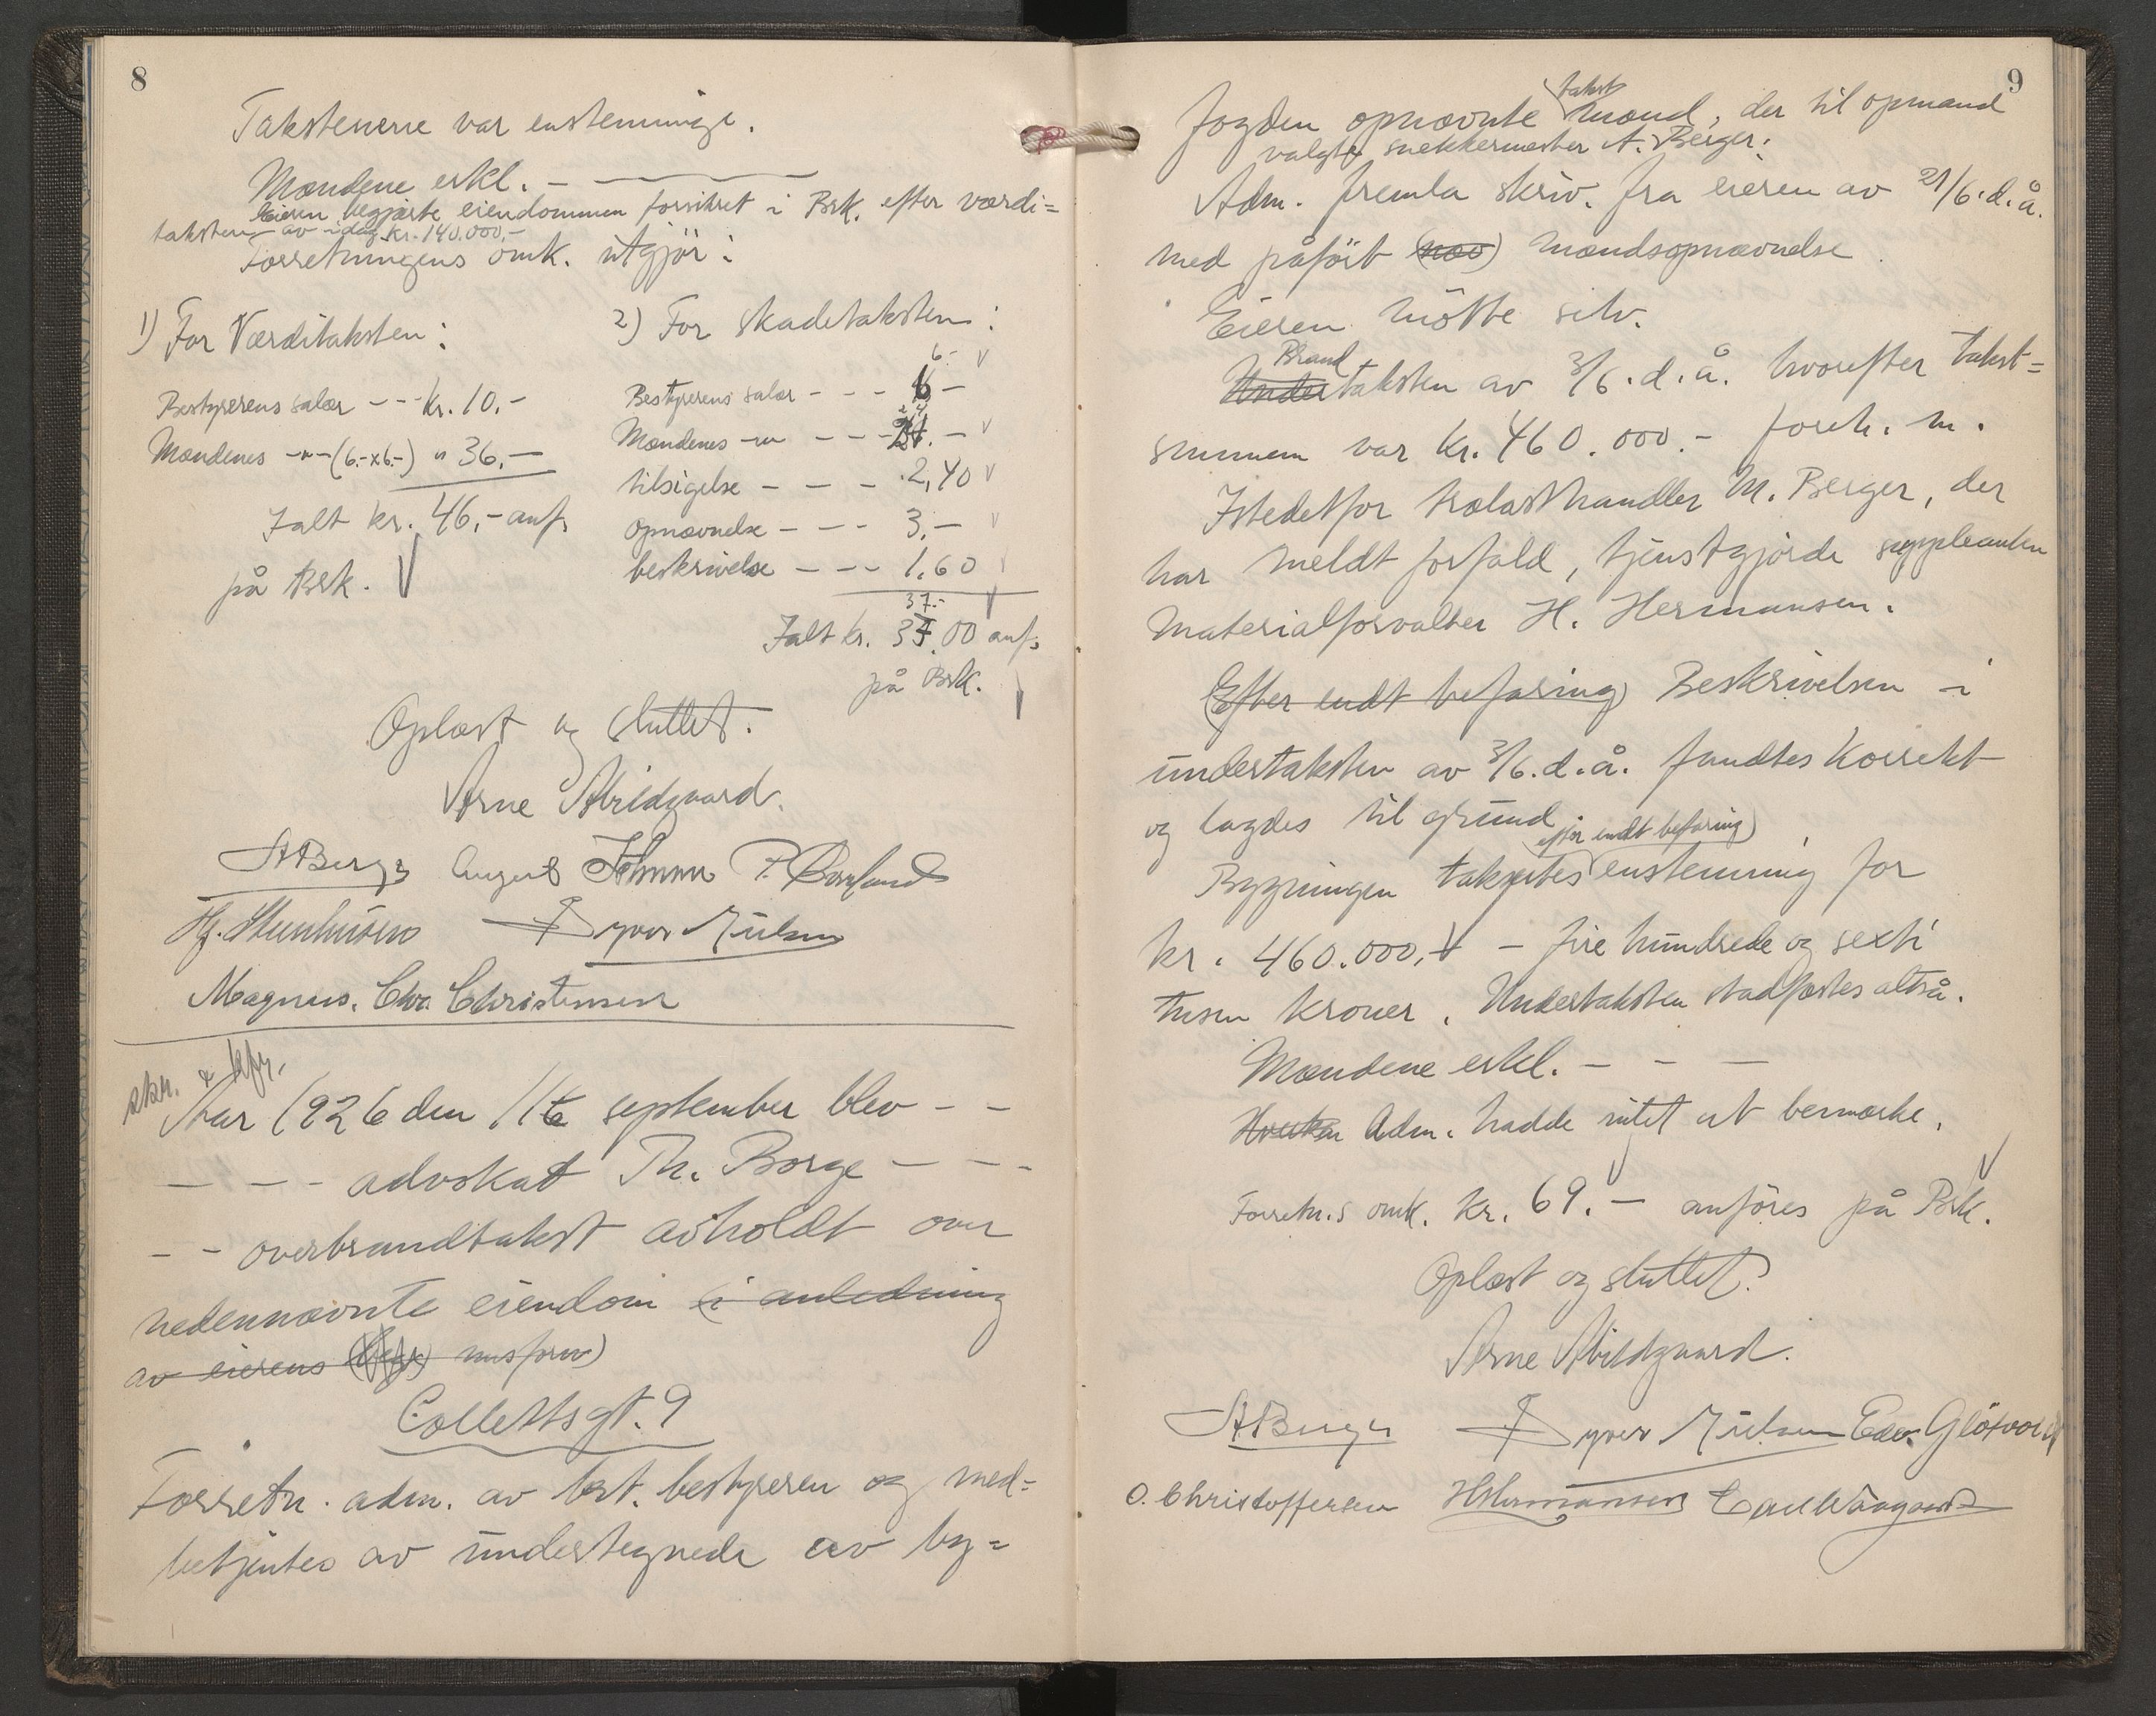 8
Takstenene var enstemmige.
Mændene erkl. -
Eieren begjærte eiendommen forsikret i Brk. efter værdi=
taksten av idag kr. 140.000,-
Forretningens omk. utgjör:
1) For Værditaksten:
Bestyrerens salær - - - kr. 10.-
Mændenes -"- (6.-x6.-) " 36.-
Ialt kr. 46,- anf.
på Brk.
2) For skadetaksten:
6.-
Bestyrerens salær - - - 6 -
24
Mændenes -"- - - - -
tilsigelse - - - - 2,40
opnævnelse - - - 3.-
beskrivelse - - - 1.60
37.-
Ialt kr. 37.00 anf.
på Brk.
Oplæst og sluttet.
Arne Abildgaard.
A Berger August Johnsen P.
Hj. Steenhusen Dyver Nielsen
Magnus. Chr. Christensen
skr. & kfr.
Aar 1926 den 116 september blev - -
- - - advokat Th. Borge - - -
- - overbrandtakst avholdt over
nedennævnte eiendom (i anledning
av eierens (begj) misforn)
Collettsgt. 9
Forretn. adm. av brt. bestyreren og med=
betjentes av undertegnede av by=
9
fogden opnævnte takst mænd, der til opmand
valgte snekkermester A. Berger:
Adm. fremla skriv. fra eieren av 21/6. d. å.
med påfört (næv) mændsopnævnelse.
Eieren mötte selv.
Brand
Undertaksten av 3/6. d. å. hvorefter takst=
summen var kr. 460.000.- foreh. m.
Istedetfor trælasthandler M. Berger, der
har meldt forfald, tjenstgjorde suppleanten
materialforvalter H. Hermansen.
(Efter endt befaring) Beskrivelsen i
undertaksten av 3/6. d. å. fandtes korrekt
og lagdes til grund.
efter endt befaring)
Bygningen taksertes enstemmig for
kr. 460.000,- - fire hundrede og sexti
tusen kroner. Undertaksten stadfæstes altså.
Mændene erkl. - - -
Adm. hadde intet at bemærke.
Forretn.s omk. kr. 69.- anföres på Brk.
Oplæst og sluttet.
Arne Abildgaard.
A Berger Dyver Nielsen Edv.
O. Christoffersen H Hermansen Carl